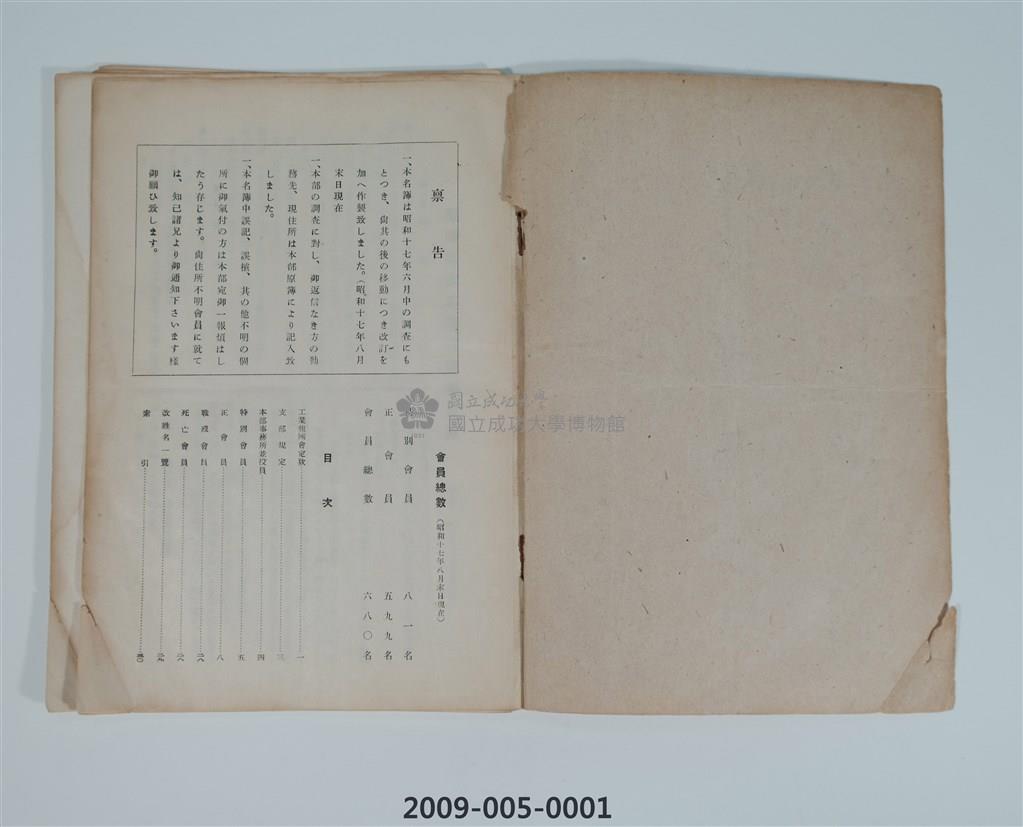 稟告
一、本名簿は昭和十七年六月中の調査にも
とつき、尙其の後の移動につき改訂を
加へ作製致しました。(昭和十七年八月
末日現在
一、本部の調査に對し、御返信なき方の勤
務先、現住所は本部原簿により記入致
しました。
一、本名簿中誤記、誤植、其の他不明の個
所に御氣付の方は本部宛御一報煩はし
たう存じます。尙住所不明會員に就て
は、知己諸兄より御通知下さいます樣
御願ひ致します。
會員總數(昭和十七年八月末日現在)
別會員 八一名
正會員 五九九名
會員總數 六八〇名
目次
工業報國會定欵 一
支部規定 三
本部事務所並役員 四
特別會員 五
正會員 八
戰歿會員
死亡會員
改姓名一覽
索引
國立成功大學
國立成功大學博物館
1931
2009-005-0001